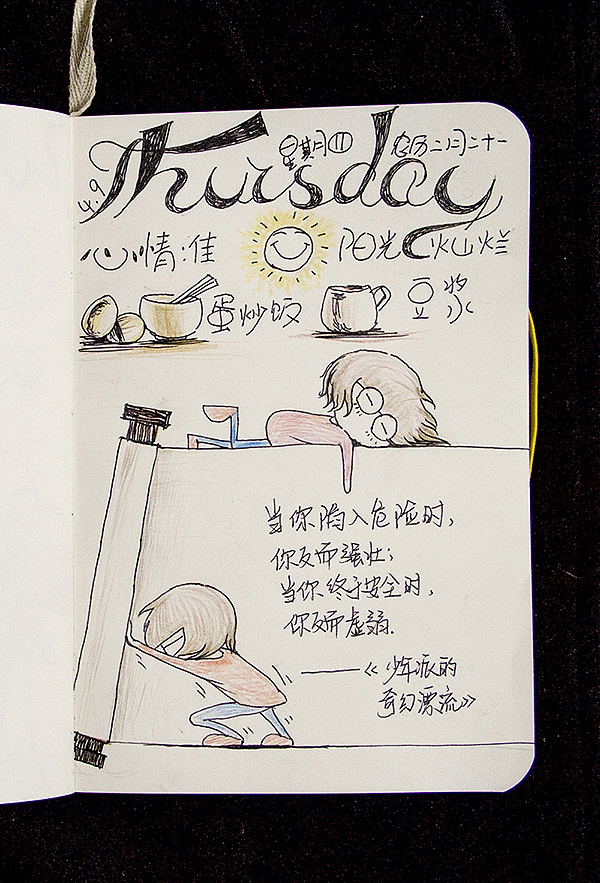 Thursday
4.9
星期四
农历二月二十一
心情:佳
阳光灿烂
蛋炒饭
豆浆
当你陷入危险时,
你反而强壮;
当你终于安全时,
你反而虚弱.
——《少年派的
奇幻漂流》